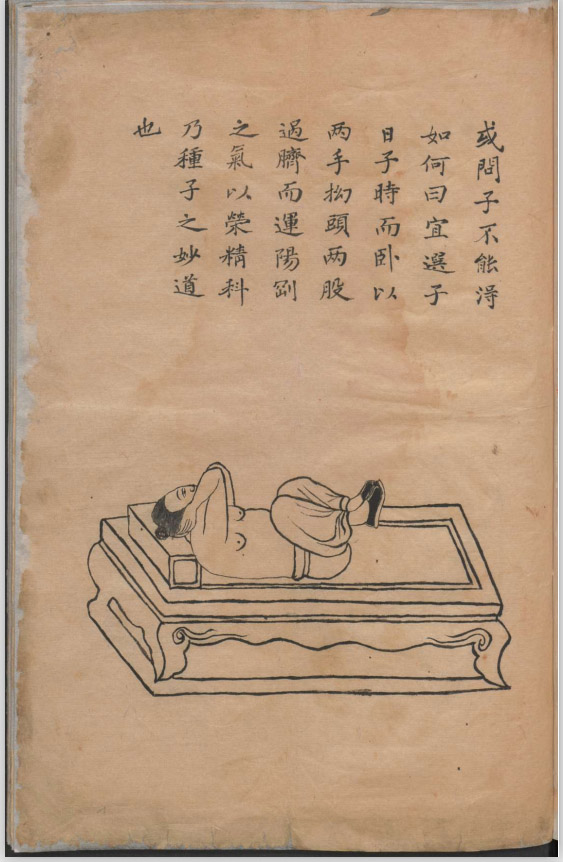 或問子不能淂
如何曰宜選子
日子時而卧以
两手抝頭两股
過臍而運陽劄
之氣以榮精科
乃種子之妙道
也